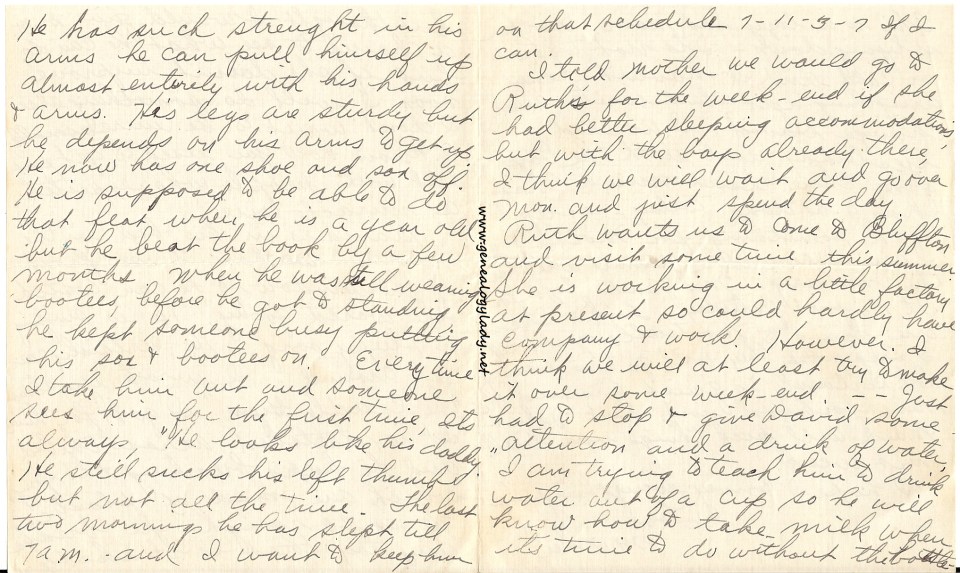 He has such strenght in his
arms he can pull himself up
almost entirely with his hands
& arms. His legs are sturdy but
he depends on his arms to get up.
He now has one shoe and sox off.
He is supposed to be able to do
that feat when he is a year old
but he beat the book by a few
months. When he was still wearing
bootees, before he got to standing
he kept someone busy putting
his sox & bootees on. Everytime
I take him out and someone
sees him for the first time, its
always, "He looks like his daddy."
He still sucks his left thumb
but not all the time. The last
two mornings he has slept till
7 a.m. and I want to keep him
on that schedule 7-11-3-7 if I
can.
I told mother we would go to
Ruth's for the week-end if she
had better sleeping accommodations
but with the boys already there,
I think we will wait and go over
Mon. and just spend the day
Ruth wants us to come to Bluffton
and visit some time this summer
She is working in a little factory
at present so could hardly have
company & work. However, I
think we will at least try to make
it over some week-end. -- Just
had to stop & give David some
"attention and a drink of water."
I am trying to teach him to drink
water out of a cup so he will
know how to take milk when
it's time to do without the bottle-
www.genealogylady.net